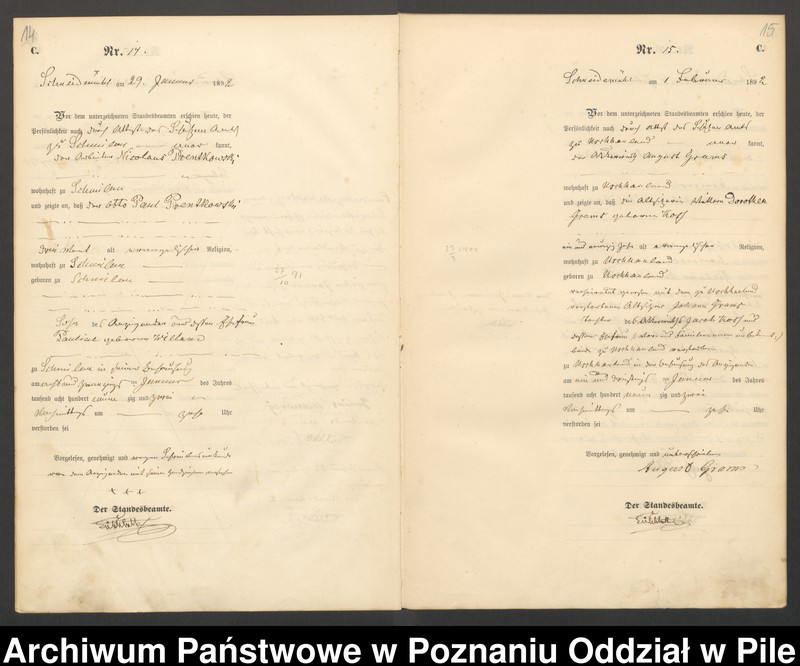 14
C.
Nr. 14.
Schneidemühl am 29. Januar 1892
Vor dem unterzeichneten Standesbeamten erschien heute, der
Persönlichkeit nach durch Attest des Schulzen Amts
zu Schmilau kannt,
der Arbeiter Nicolaus Poentkowski
wohnhaft zu Schmilau
und zeigte an, daß der Otto Paul Poentkowski
drei Monat alt evangelischer Religion,
wohnhaft zu Schmilau
geboren zu Schmilau
27/10 91
Sohn des Anzeigenden und dessen Ehefrau
Pauline geborene
zu Schmilau in seiner Behausung
am acht und zwanzigsten Januar des Jahres
tausend acht hundert neun zig und zwei
Vormittags um Uhr
verstorben sei
Vorgelesen, genehmigt und wegen Schreibensunkunde
von dem Anzeigenden mit seinem Handzeichen versehen
+ + +
Der Standesbeamte.
15
Nr. 15.
C.
Schneidemühl am 1 Februar 1892
Vor dem unterzeichneten Standesbeamten erschien heute, der
Persönlichkeit nach durch Attest des Schulzen Amts
zu Uschhauland kannt,
der August Grams
wohnhaft zu Uschhauland
und zeigte an, daß die Altsitzerin Wittwe Dorothea
Grams geborene
alt evangelischer Religion,
wohnhaft zu Uschhauland
geboren zu Uschhauland
verheirathet gewesen mit dem zu Uschhauland
verstorbenen Altsitzer Johann Grams
Tochter des Jacob und
dessen Ehefrau
zu Uschhauland verstorben
zu Uschhauland in der Behausung des Anzeigenden
am ein und dreißigsten Januar des Jahres
tausend acht hundert neun zig und zwei
Vormittags um Uhr
verstorben sei
Vorgelesen, genehmigt und unterschrieben
August Grams
Der Standesbeamte.
Archiwum Państwowe w Poznaniu Oddział w Pile